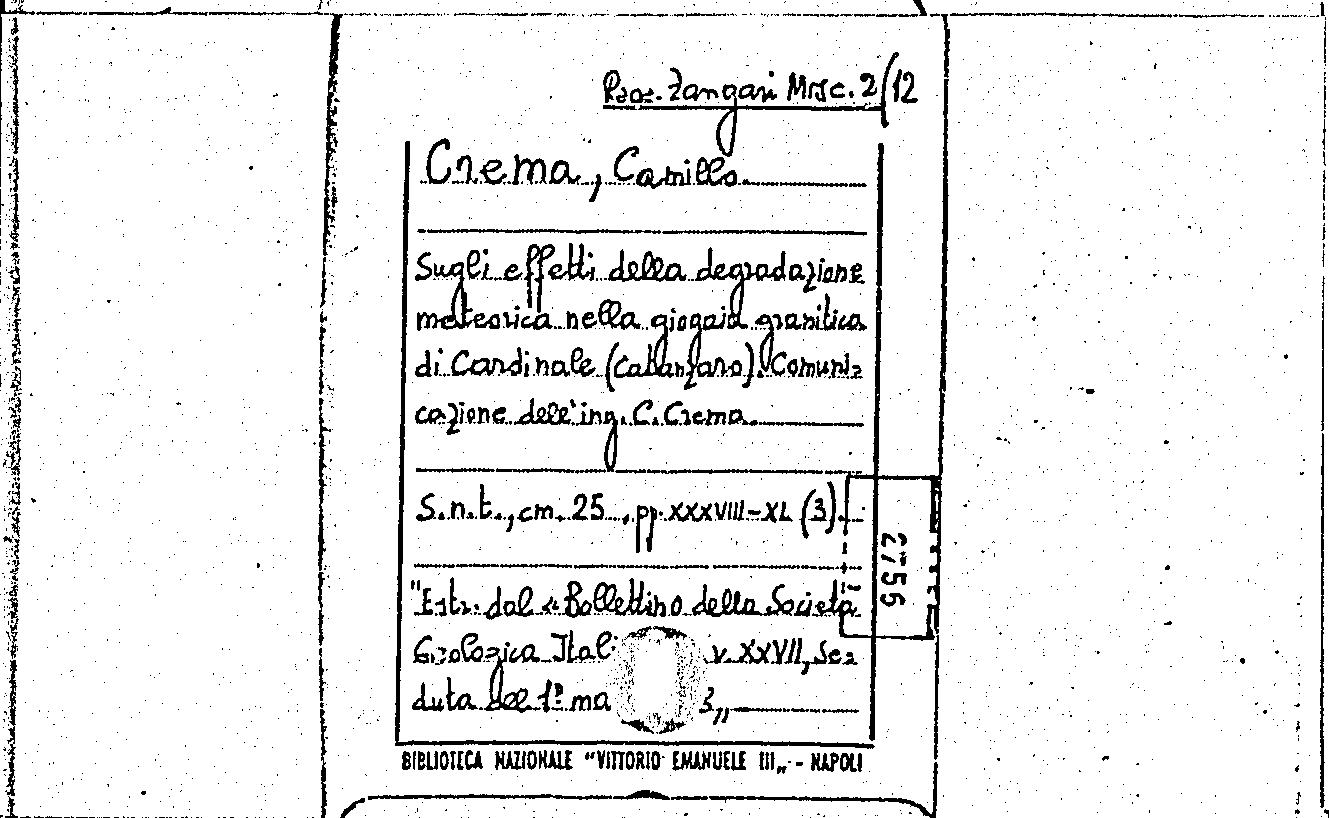 Racc. Zangari Misc. 2/12
Crema, Camillo.
Sugli effetti della degradazione
meteorica nella giogaia granitica
di Cardinale (Catanzaro). Comuni=
cazione dell'ing. C. Crema.
S.n.t., cm. 25, pp. XXXVIII-XL (3).
2755
"Estr. dal « Bollettino della Società
Geologica Ital v. XXVII, Se=
duta del 1º ma 3„
BIBLIOTECA NAZIONALE "VITTORIO EMANUELE III„ - NAPOLI